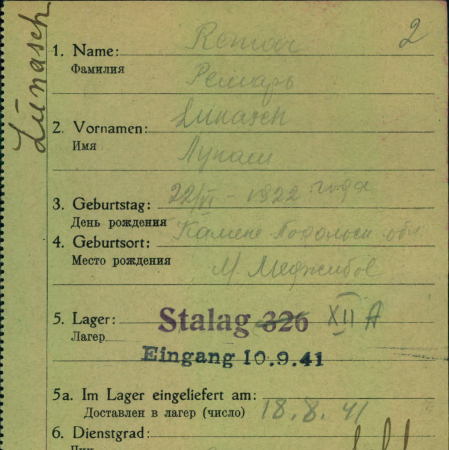 Lunasch
2
1. Name: Remar
Фамилия
Ремарь
2. Vornamen: Lukasch
Имя
Лукаш
3. Geburtstag: 22/VI - 1922 года
День рождения
4. Geburtsort: Камене Подольск обл
Место рождения
М Меджибов
5. Lager: Stalag 326 XII A
Лагер
Eingang 10.9.41
5a. Im Lager eingeliefert am:
Доставлен в лагер (число) 18.8.41
6. Dienstgrad: